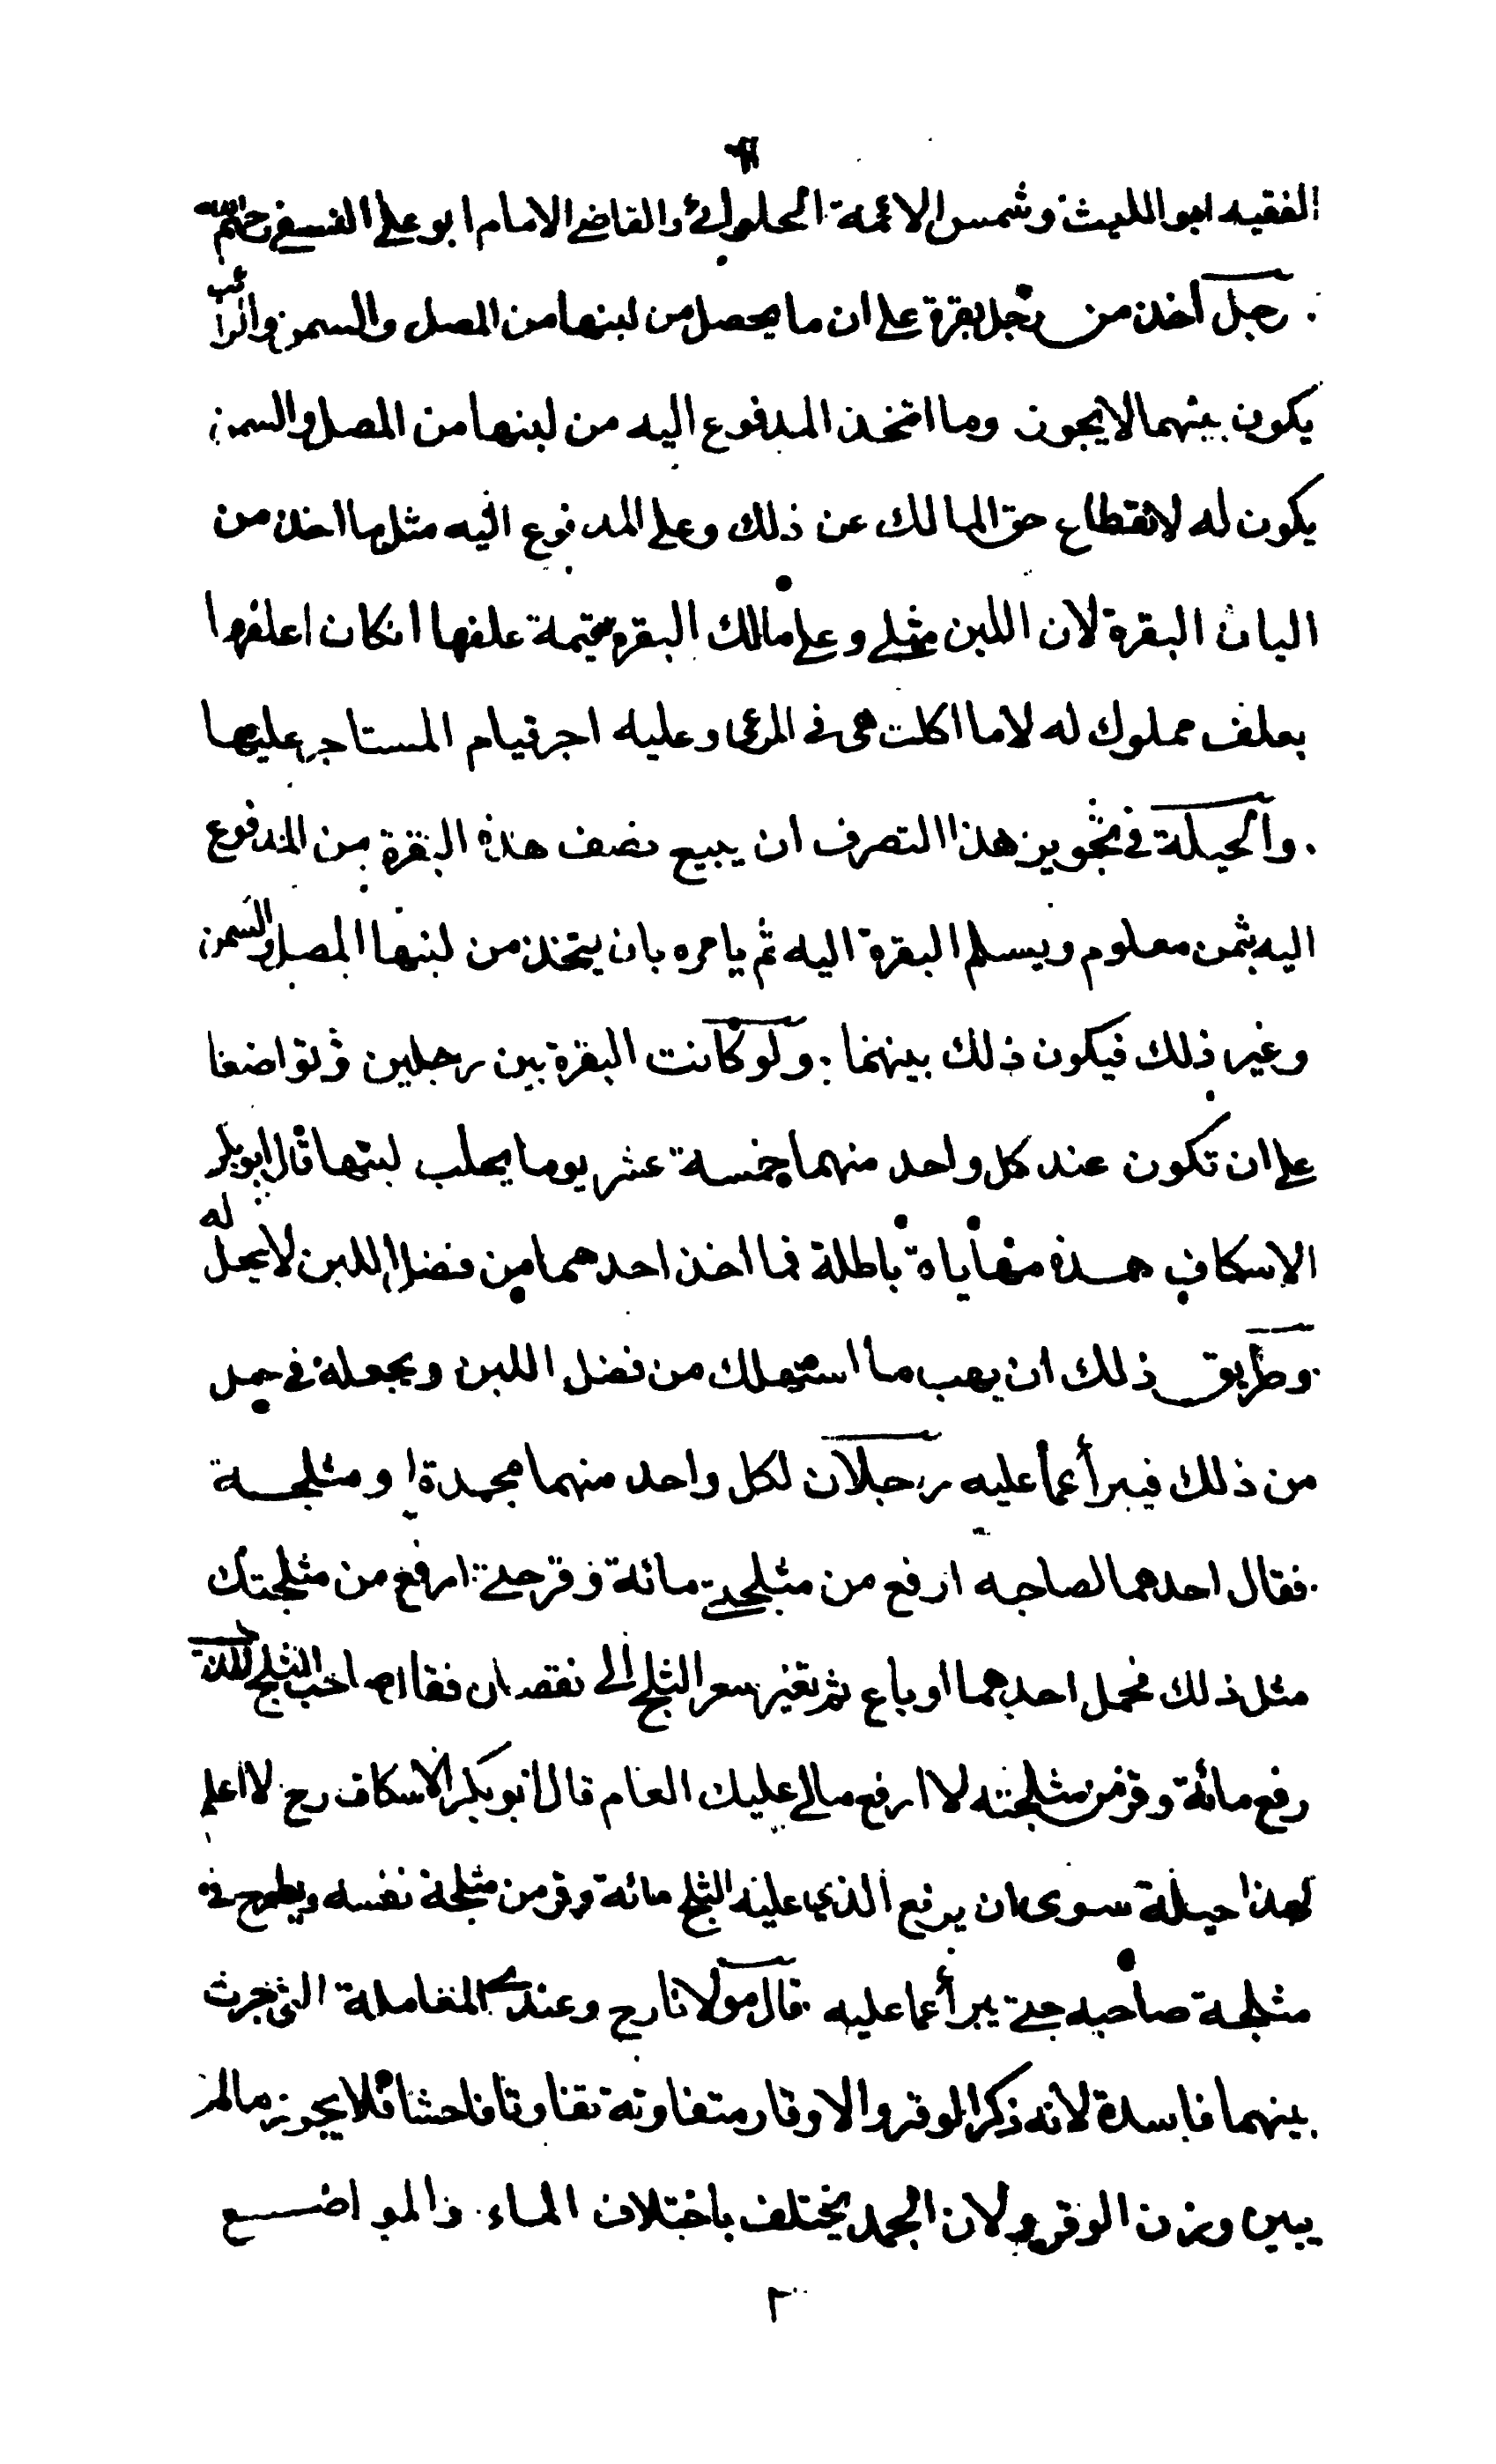 الفقيه ابو الليث وشمس الائمة الحلوائي والقاضي الامام ابو علي النسفي رحمهم الله
رجل اخذ من رجل بقرة على ان ما يحصل من لبنها من المصل والسمن والرائب
يكون بينهما لا يجوز وما اتخذ المدفوع اليه من لبنها من المصل والسمن
يكون له لانقطاع حق المالك عن ذلك وعلى المدفوع اليه مثل ما اخذ من
البان البقرة لان اللبن مثلي وعلى مالك البقرة قيمة علفها انكان اعلفها
بعلف مملوك له لا ما اكلت هي في المرعى وعليه اجر قيام المستاجر عليها
والحيلة في تجويز هذا التصرف ان يبيع نصف هذه البقرة من المدفوع
اليه بثمن معلوم ويسلم البقرة اليه ثم يامره بان يتخذ من لبنها المصل والسمن
وغير ذلك فيكون ذلك بينهما ولو كانت البقرة بين رجلين وتواضعا
على ان تكون عند كل واحد منهما خمسة عشر يوما يحلب لبنها قال ابو بكر
الاسكاف هذه مهاياة باطلة فما اخذ احدهما من فضل اللبن لا يحل له
وطريق ذلك ان يهب ما استهلك من فضل اللبن ويجعله في حل
من ذلك فيبرأ عما عليه رجلان لكل واحد منهما مجمدة او مثلجة
فقال احدهما لصاحبه ارفع من مثلجتي مائة وقر حتى ارفع من مثلجتك
مثل ذلك فحمل احدهما او باع ثم تغير سعر الثلج الى نقصان فقال صاحب الثلج للذي
رفع مائة وقر من مثلجته لا ارفع مالي عليك العام قال ابو بكر الاسكاف رح لا اعلم
لهذا حيلة سوى ان يرفع الذي عليه الثلج مائة وقر من مثلجة نفسه ويطرح في
مثلجة صاحبه حتى يبرأ عما عليه قال مولانا رح وعندي المعاملة التي جرت
بينهما فاسدة لانه ذكر الوقر والاوقار متفاوتة تفاوتا فاحشا فلا يجوز ما لم
يبين وزن الوقر ولان الجمد يختلف باختلاف الماء والمواضع